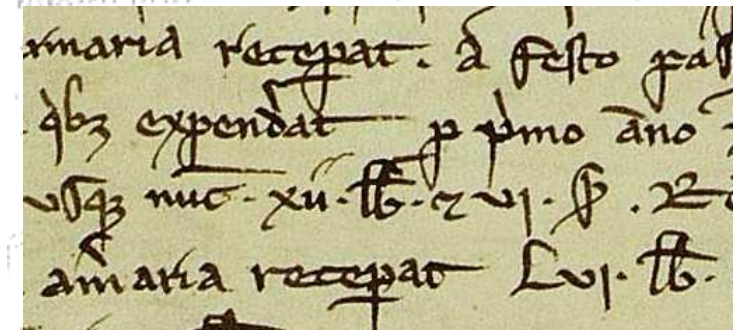 rmaria recep̱at . a festo pas
qͥbꝫ expend̾at ꝑ pͥmo āno
usqꝫ nūc · xii · ƚƚb · ⁊ vi · ß . Re
am̾aria recep̱at Lvi · ƚƚb ·